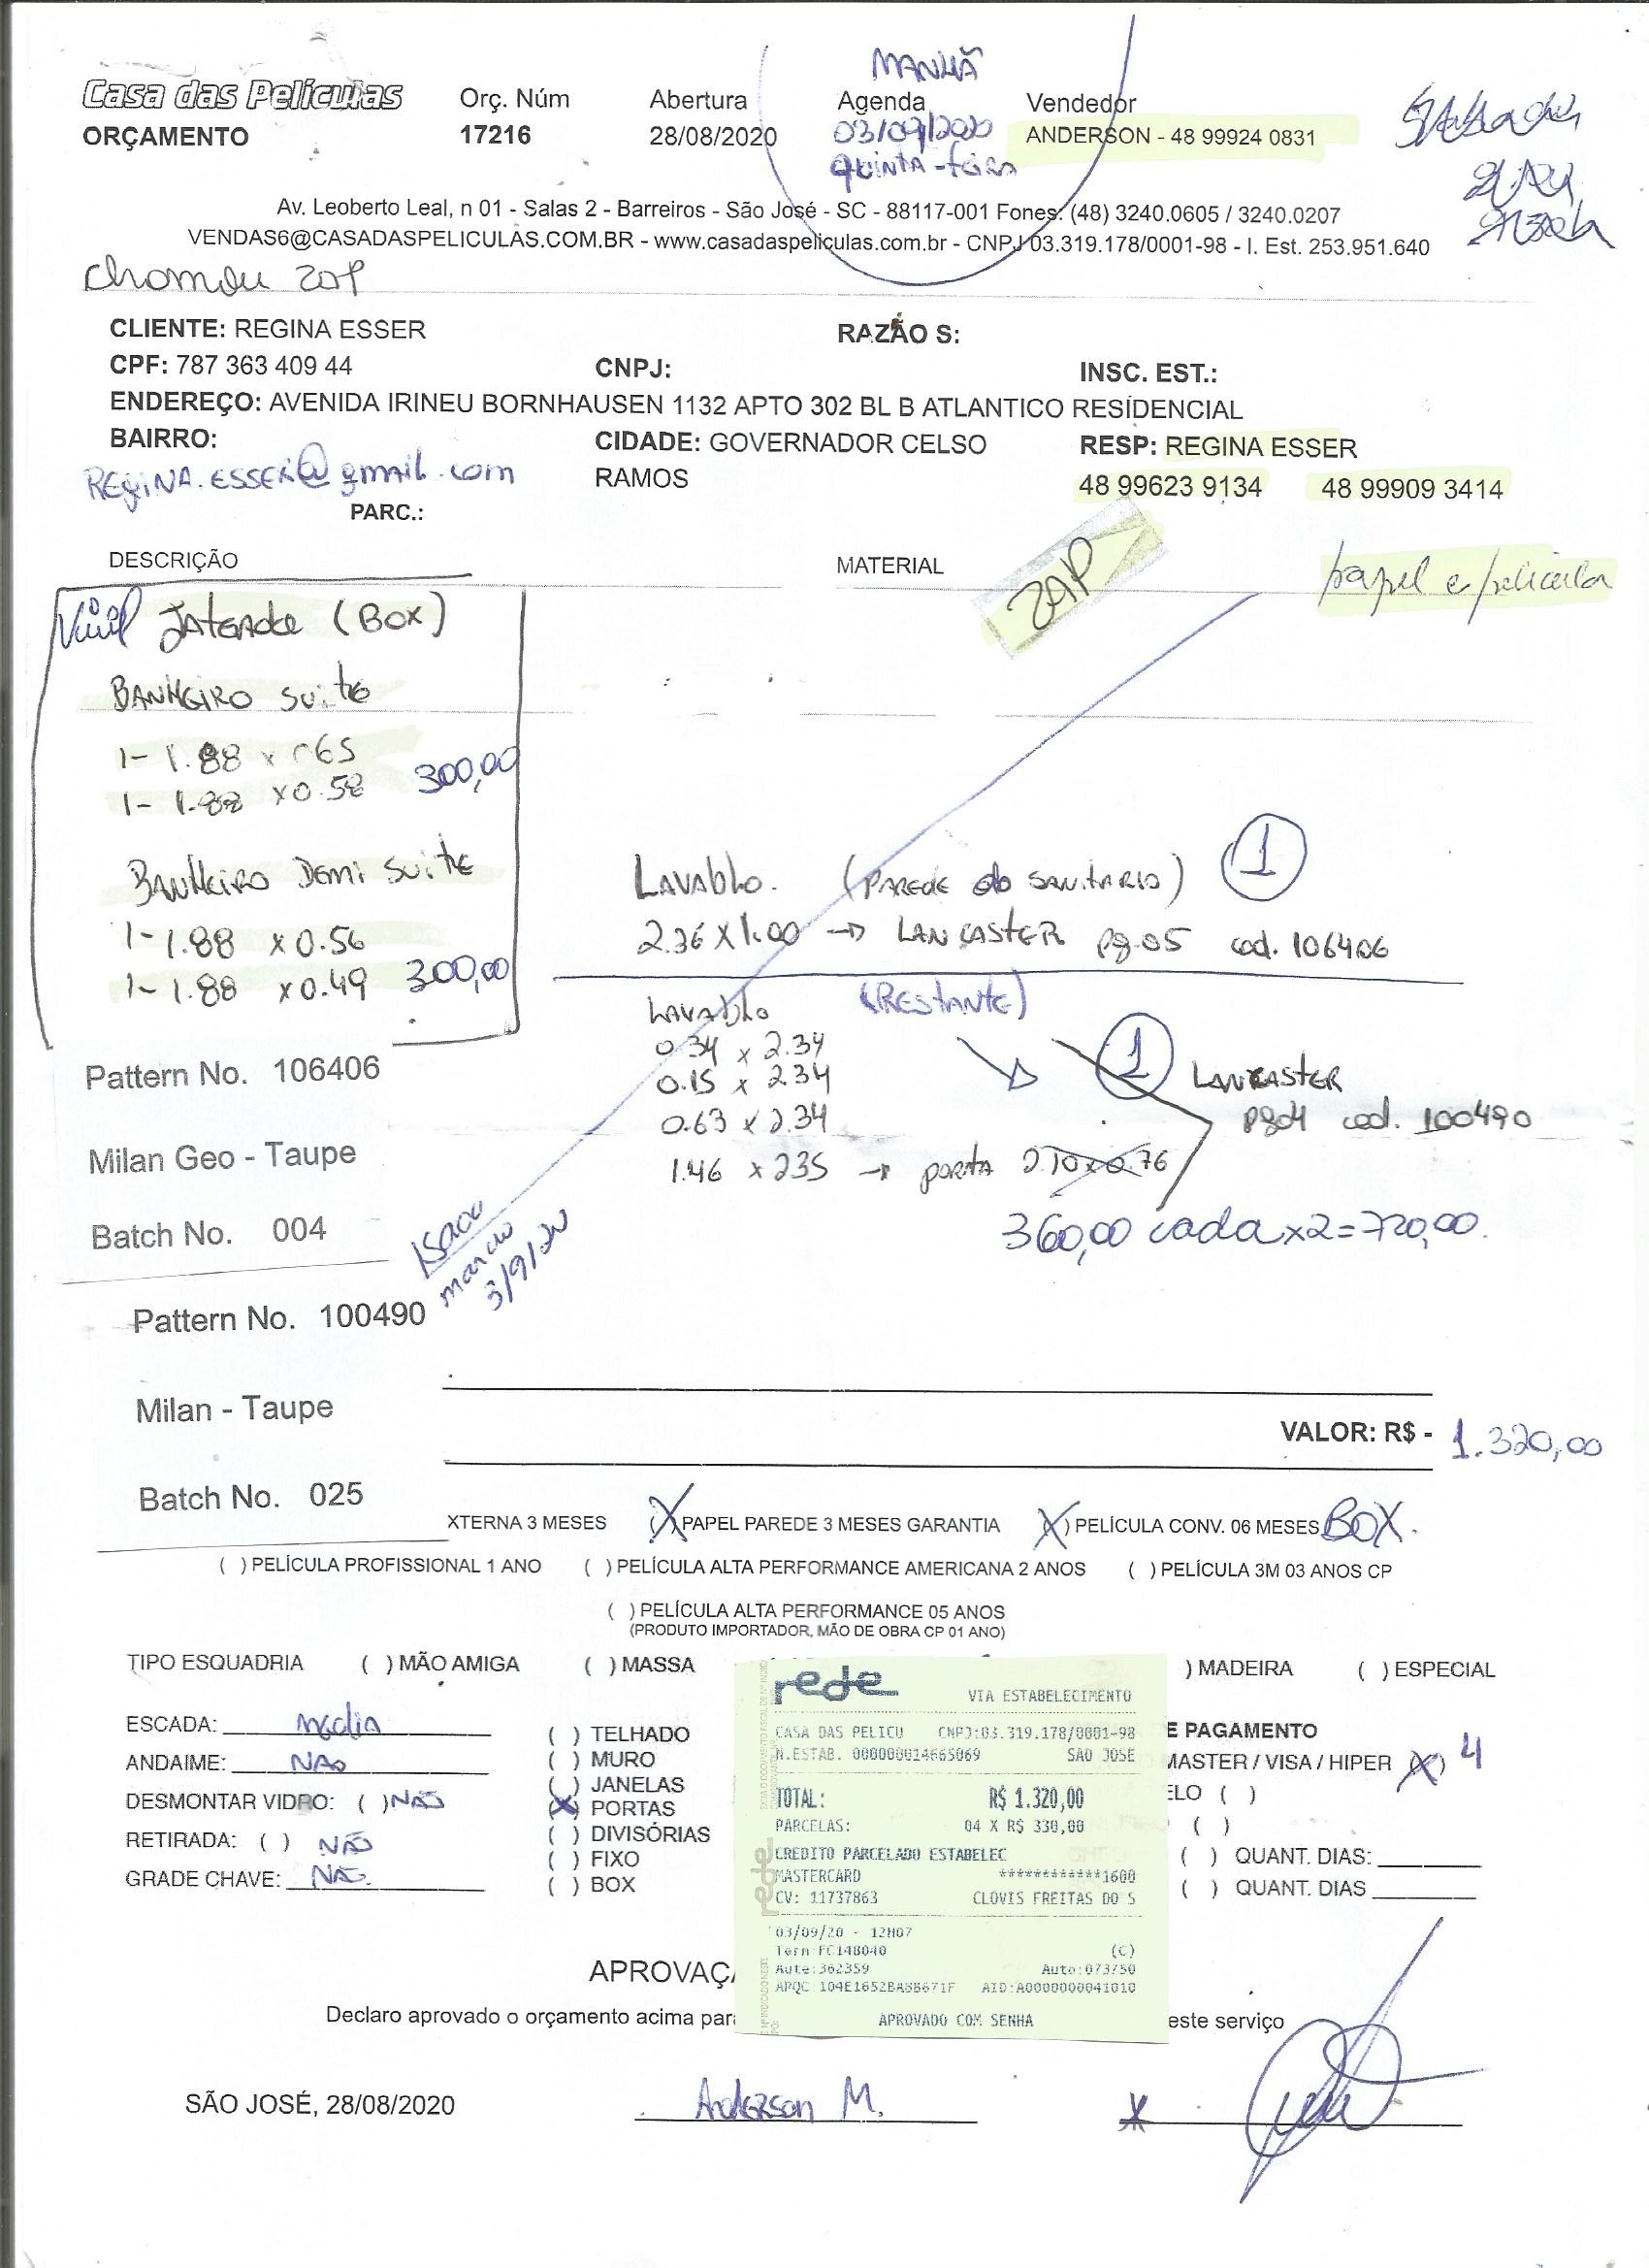 MANHÃ
Casa das Películas
ORÇAMENTO
Orç. Núm
17216
Abertura
28/08/2020
Agenda
03/09/2020
QUINTA-feira
Vendedor
ANDERSON - 48 99924 0831
Av. Leoberto Leal, n 01 - Salas 2 - Barreiros - São José - SC - 88117-001 Fones: (48) 3240.0605 / 3240.0207
VENDAS6@CASADASPELICULAS.COM.BR - www.casadaspeliculas.com.br - CNPJ 03.319.178/0001-98 - I. Est. 253.951.640
CLIENTE: REGINA ESSER
RAZÃO S:
CPF: 787 363 409 44
CNPJ:
INSC. EST.:
ENDEREÇO: AVENIDA IRINEU BORNHAUSEN 1132 APTO 302 BL B ATLANTICO RESIDENCIAL
BAIRRO:
CIDADE: GOVERNADOR CELSO
RAMOS
RESP: REGINA ESSER
48 99623 9134 48 99909 3414
REGINA.ESSER@gmail.com
PARC.:
DESCRIÇÃO
MATERIAL
ZAP
papel e película
Vinil Jateado (BOX)
BANHEIRO SUITE
1- 1.88 x 065
1- 1.88 x 0.58
300,00
BANHEIRO DEMI SUITE
1- 1.88 x 0.56
1- 1.88 x 0.49
300,00
LAVABLO. (PAREDE do SANITARIO) 1
2.36 X 1.00 → LANCASTER pg.05 cod. 106406
LAVABLO (RESTANTE)
0.34 x 2.34
0.15 x 2.34
0.63 x 2.34
1.46 x 235 → porta 2.10x0.76
1 LANCASTER
pg04 cod. 100490
360,00 cada x2=720,00.
Pattern No. 106406
Milan Geo - Taupe
Batch No. 004
3/9/20
Pattern No. 100490
Milan - Taupe
Batch No. 025
VALOR: R$ - 1.320,00
XTERNA 3 MESES (X) PAPEL PAREDE 3 MESES GARANTIA (X) PELÍCULA CONV. 06 MESES BOX.
( ) PELÍCULA PROFISSIONAL 1 ANO ( ) PELÍCULA ALTA PERFORMANCE AMERICANA 2 ANOS ( ) PELÍCULA 3M 03 ANOS CP
( ) PELÍCULA ALTA PERFORMANCE 05 ANOS
(PRODUTO IMPORTADOR, MÃO DE OBRA CP 01 ANO)
TIPO ESQUADRIA ( ) MÃO AMIGA ( ) MASSA ) MADEIRA ( ) ESPECIAL
ESCADA: Média
ANDAIME: NÃO
DESMONTAR VIDRO: ( ) NÃO
RETIRADA: ( ) NÃO
GRADE CHAVE: NÃO.
( ) TELHADO
( ) MURO
( ) JANELAS
(X) PORTAS
( ) DIVISÓRIAS
( ) FIXO
( ) BOX
rede
VIA ESTABELECIMENTO
CASA DAS PELICU CNPJ:03.319.178/0001-98
N.ESTAB. 000000014665069 SAO JOSE
TOTAL: R$ 1.320,00
PARCELAS: 04 X R$ 330,00
CREDITO PARCELADO ESTABELEC
MASTERCARD ************1600
CV: 11737863 CLOVIS FREITAS DO S
03/09/20 - 12H07
Term:FC148040 (C)
Aute:362359 Auto:073750
AID:A0000000041010
APROVADO COM SENHA
rede
E PAGAMENTO
MASTER / VISA / HIPER (X) 4
ELO ( )
( )
( ) QUANT. DIAS:
( ) QUANT. DIAS
APROVAÇ
Declaro aprovado o orçamento acima par
este serviço
SÃO JOSÉ, 28/08/2020
Anderson M.